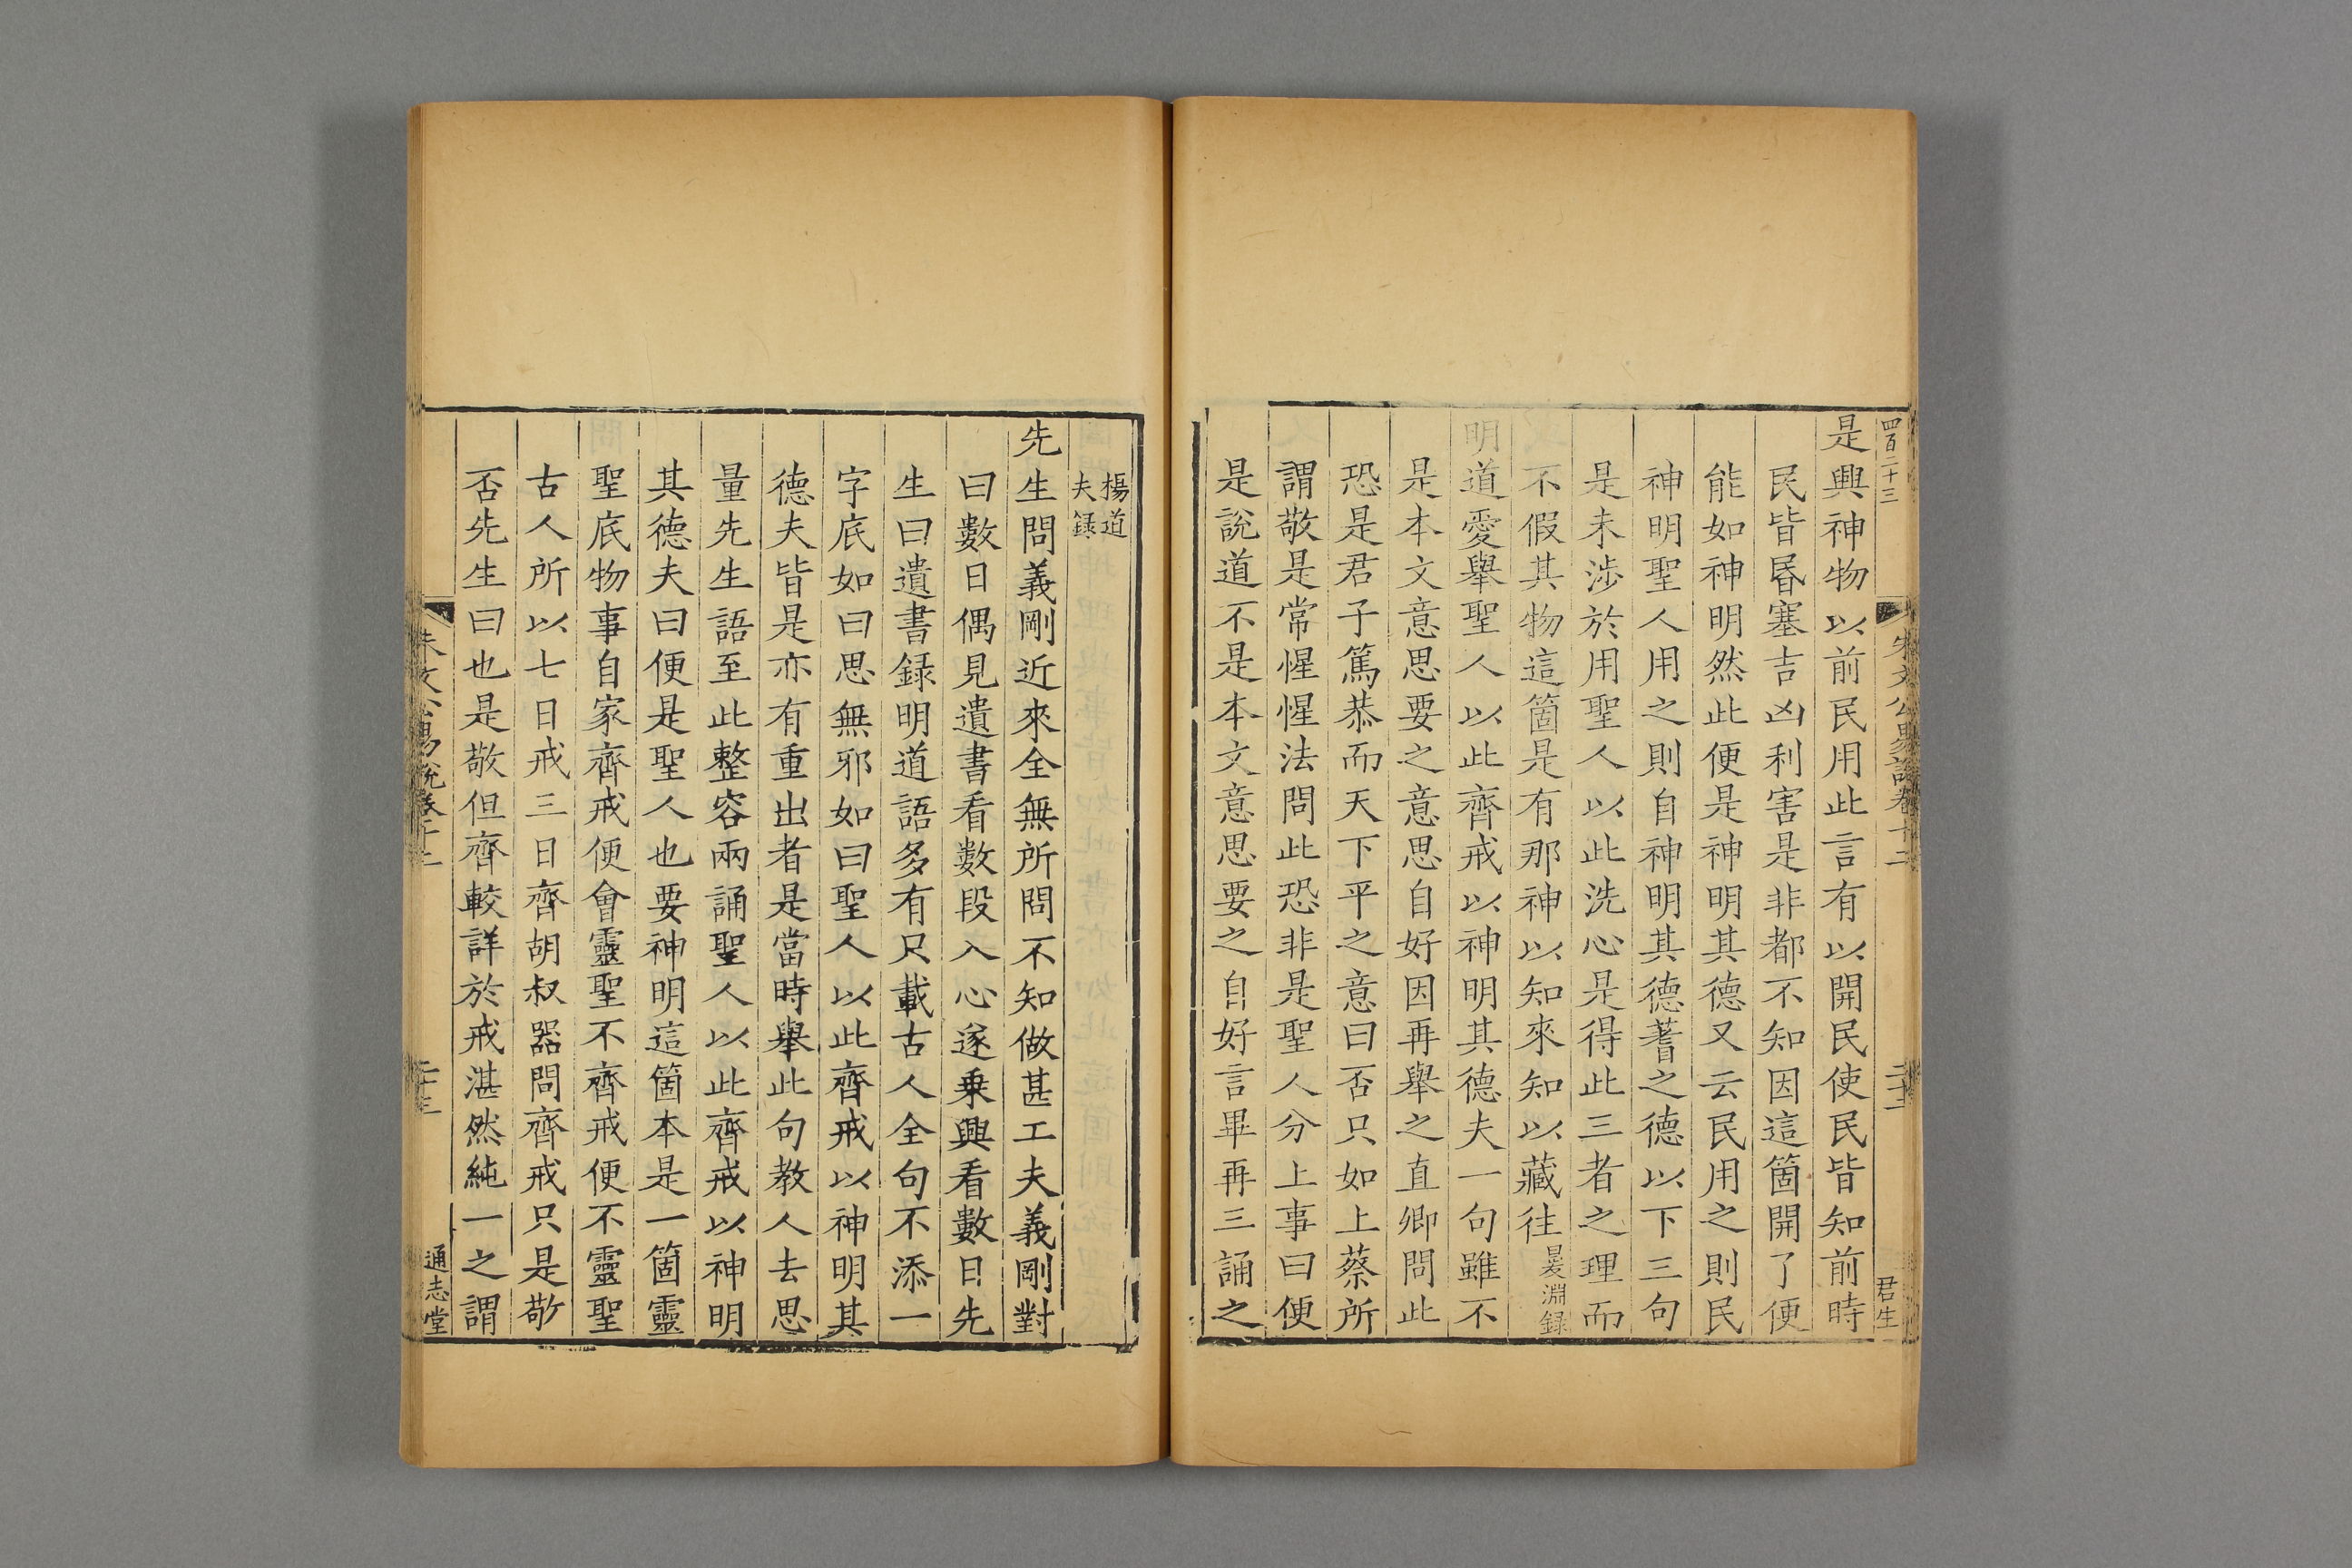 四百二十三
朱文公易說卷十二
二十二
君生
是興神物以前民用此言有以開民使民皆知前時
民皆昏塞吉凶利害是非都不知因這箇開了便
能如神明然此便是神明其德又云民用之則民
神明聖人用之則自神明其德蓍之德以下三句
是未涉於用聖人以此洗心是得此三者之理而
不假其物這箇是有那神以知來知以藏往㬊淵録
明道愛舉聖人以此齊戒以神明其德夫一句雖不
是本文意思要之意思自好因再舉之直卿問此
恐是君子篤恭而天下平之意曰否只如上蔡所
謂敬是常惺惺法問此恐非是聖人分上事曰便
是說道不是本文意思要之自好言畢再三誦之
楊道
夫録
先生問義剛近來全無所問不知做甚工夫義剛對
曰數日偶見遺書看數段入心遂乗興看數日先
生曰遺書録明道語多有只載古人全句不添一
字底如曰思無邪如曰聖人以此齊戒以神明其
德夫皆是亦有重出者是當時舉此句教人去思
量先生語至此整容兩誦聖人以此齊戒以神明
其德夫曰便是聖人也要神明這箇本是一箇靈
聖底物事自家齊戒便會靈聖不齊戒便不靈聖
古人所以七日戒三日齊胡叔器問齊戒只是敬
否先生曰也是敬但齊較詳於戒湛然純一之謂
朱文公易說卷十二
二十三
通志堂